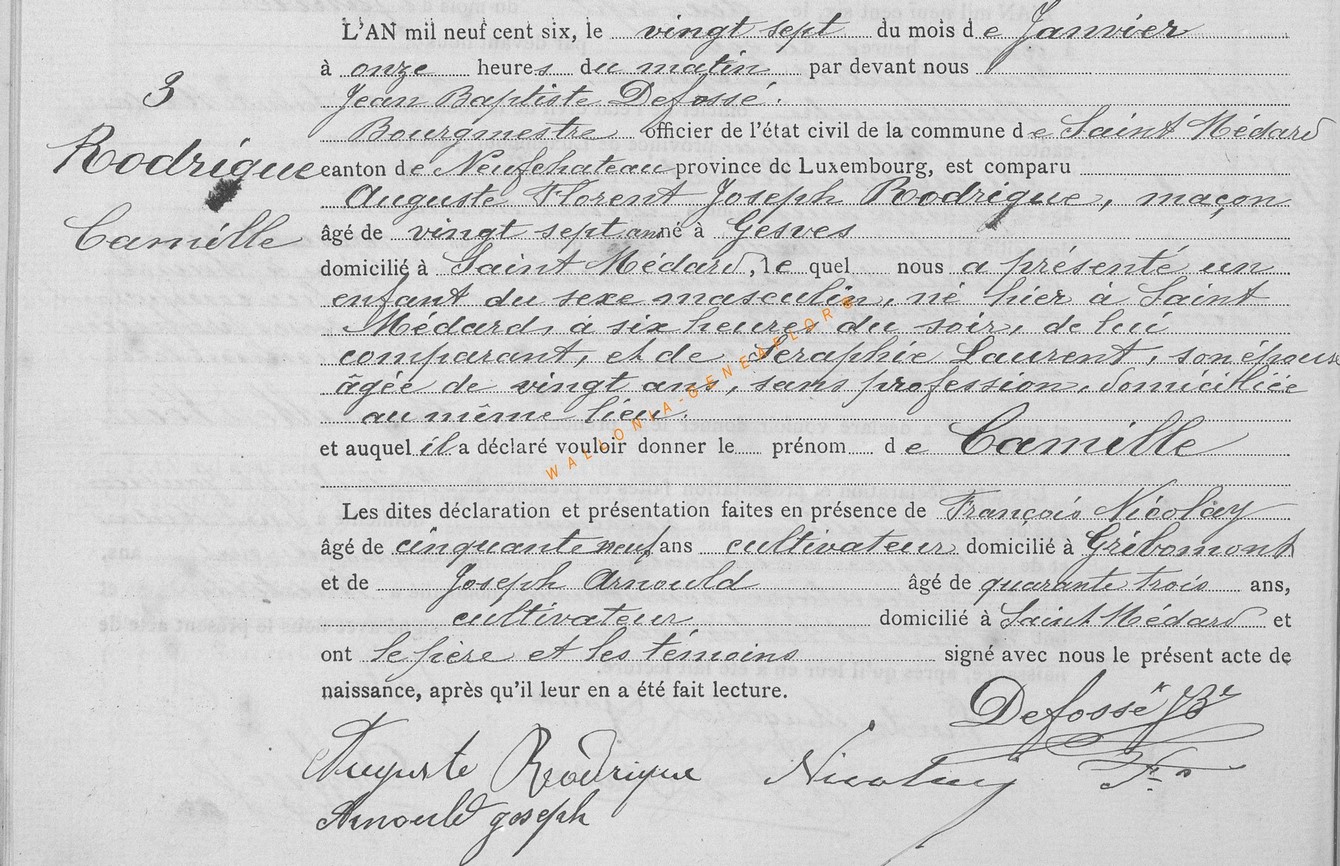 L'AN mil neuf cent six, le vingt sept du mois de Janvier
à onze heures du matin par devant nous
3
Jean Baptiste Defossé.
Bourgmestre officier de l'état civil de la commune de Saint Médard
Rodrigue
canton de Neufchateau province de Luxembourg, est comparu
Auguste Florent Joseph Rodrigue, maçon
Camille
âgé de vingt sept ans né à Gesves
domicilié à Saint Médard, le quel nous a présenté un
enfant du sexe masculin, né hier à Saint
Médard, à six heures du soir, de lui
comparant, et de Seraphie Laurent, son épouse
âgée de vingt ans, sans profession, domicilliée
au même lieu.
et auquel il a déclaré vouloir donner le prénom de Camille
WALLONIA-GENEAFLORS
Les dites déclaration et présentation faites en présence de François Nicolay
âgé de cinquante neuf ans cultivateur domicilié à Gribomont
et de Joseph Arnould âgé de quarante trois ans,
cultivateur domicilié à Saint Médard et
ont le père et les témoins signé avec nous le présent acte de
naissance, après qu'il leur en a été fait lecture.
Defossé JBte
Auguste Rodrigue Nicolay Fs
Arnould joseph